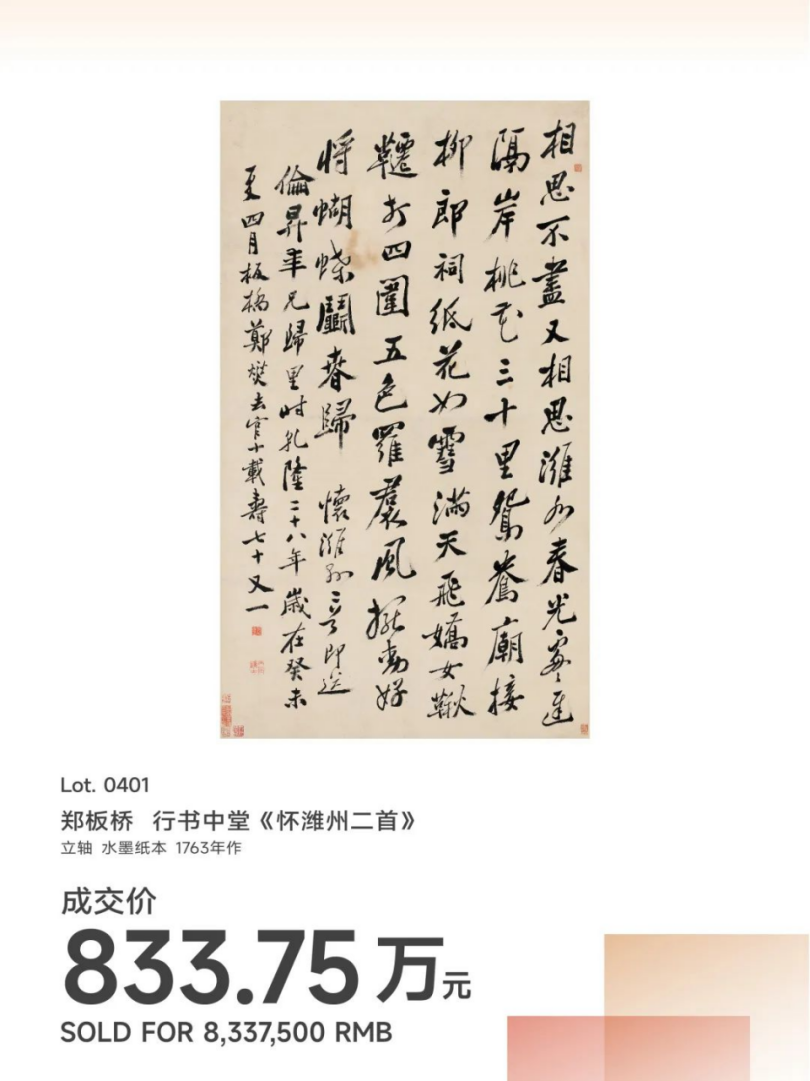 相思不盡又相思濰水春光處處遲
隔岸桃花三十里鴛鴦廟接
柳郎祠紙花如雪滿天飛嬌女鞦
韆打四圍五色羅裠風擺動好
將蝴蝶鬬春歸 懷濰州二首即送
倫昇年兄歸里時乾隆二十八年歲在癸未
夏四月板橋鄭燮去官十載壽七十又一
Lot. 0401
郑板桥 行书中堂《怀潍州二首》
立轴 水墨纸本 1763年作
成交价
833.75 万元
SOLD FOR 8,337,500 RMB